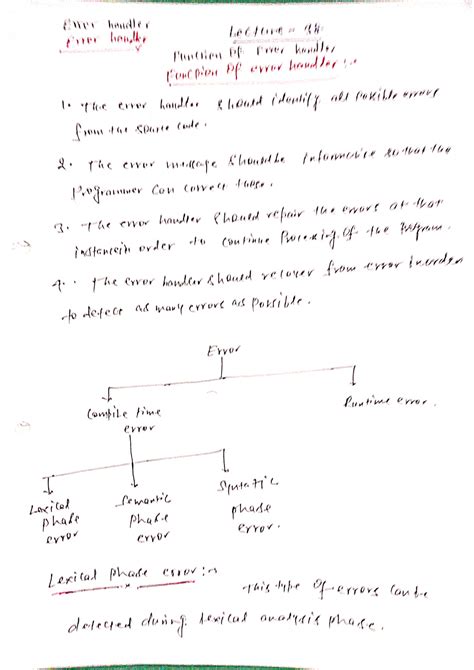 Error handler
Error handler
Lecture -
Function Of Error handler
Function Of error handler :-
1. The error handler should identify all possible errors
from the source code.
2. The error message should be informative so that the
Programmer can correct those.
3. The error handler should repair the errors at that
instance in order to continue Processing of the Program.
4. The error handler should recover from error in order
to detect as many errors as possible.
Error
Compile time
error
Runtime error.
Lexical
phase
error
Semantic
phase
error
Syntatic
phase
error.
Lexical phase error :-
This type of errors can be
detected during lexical analysis phase.